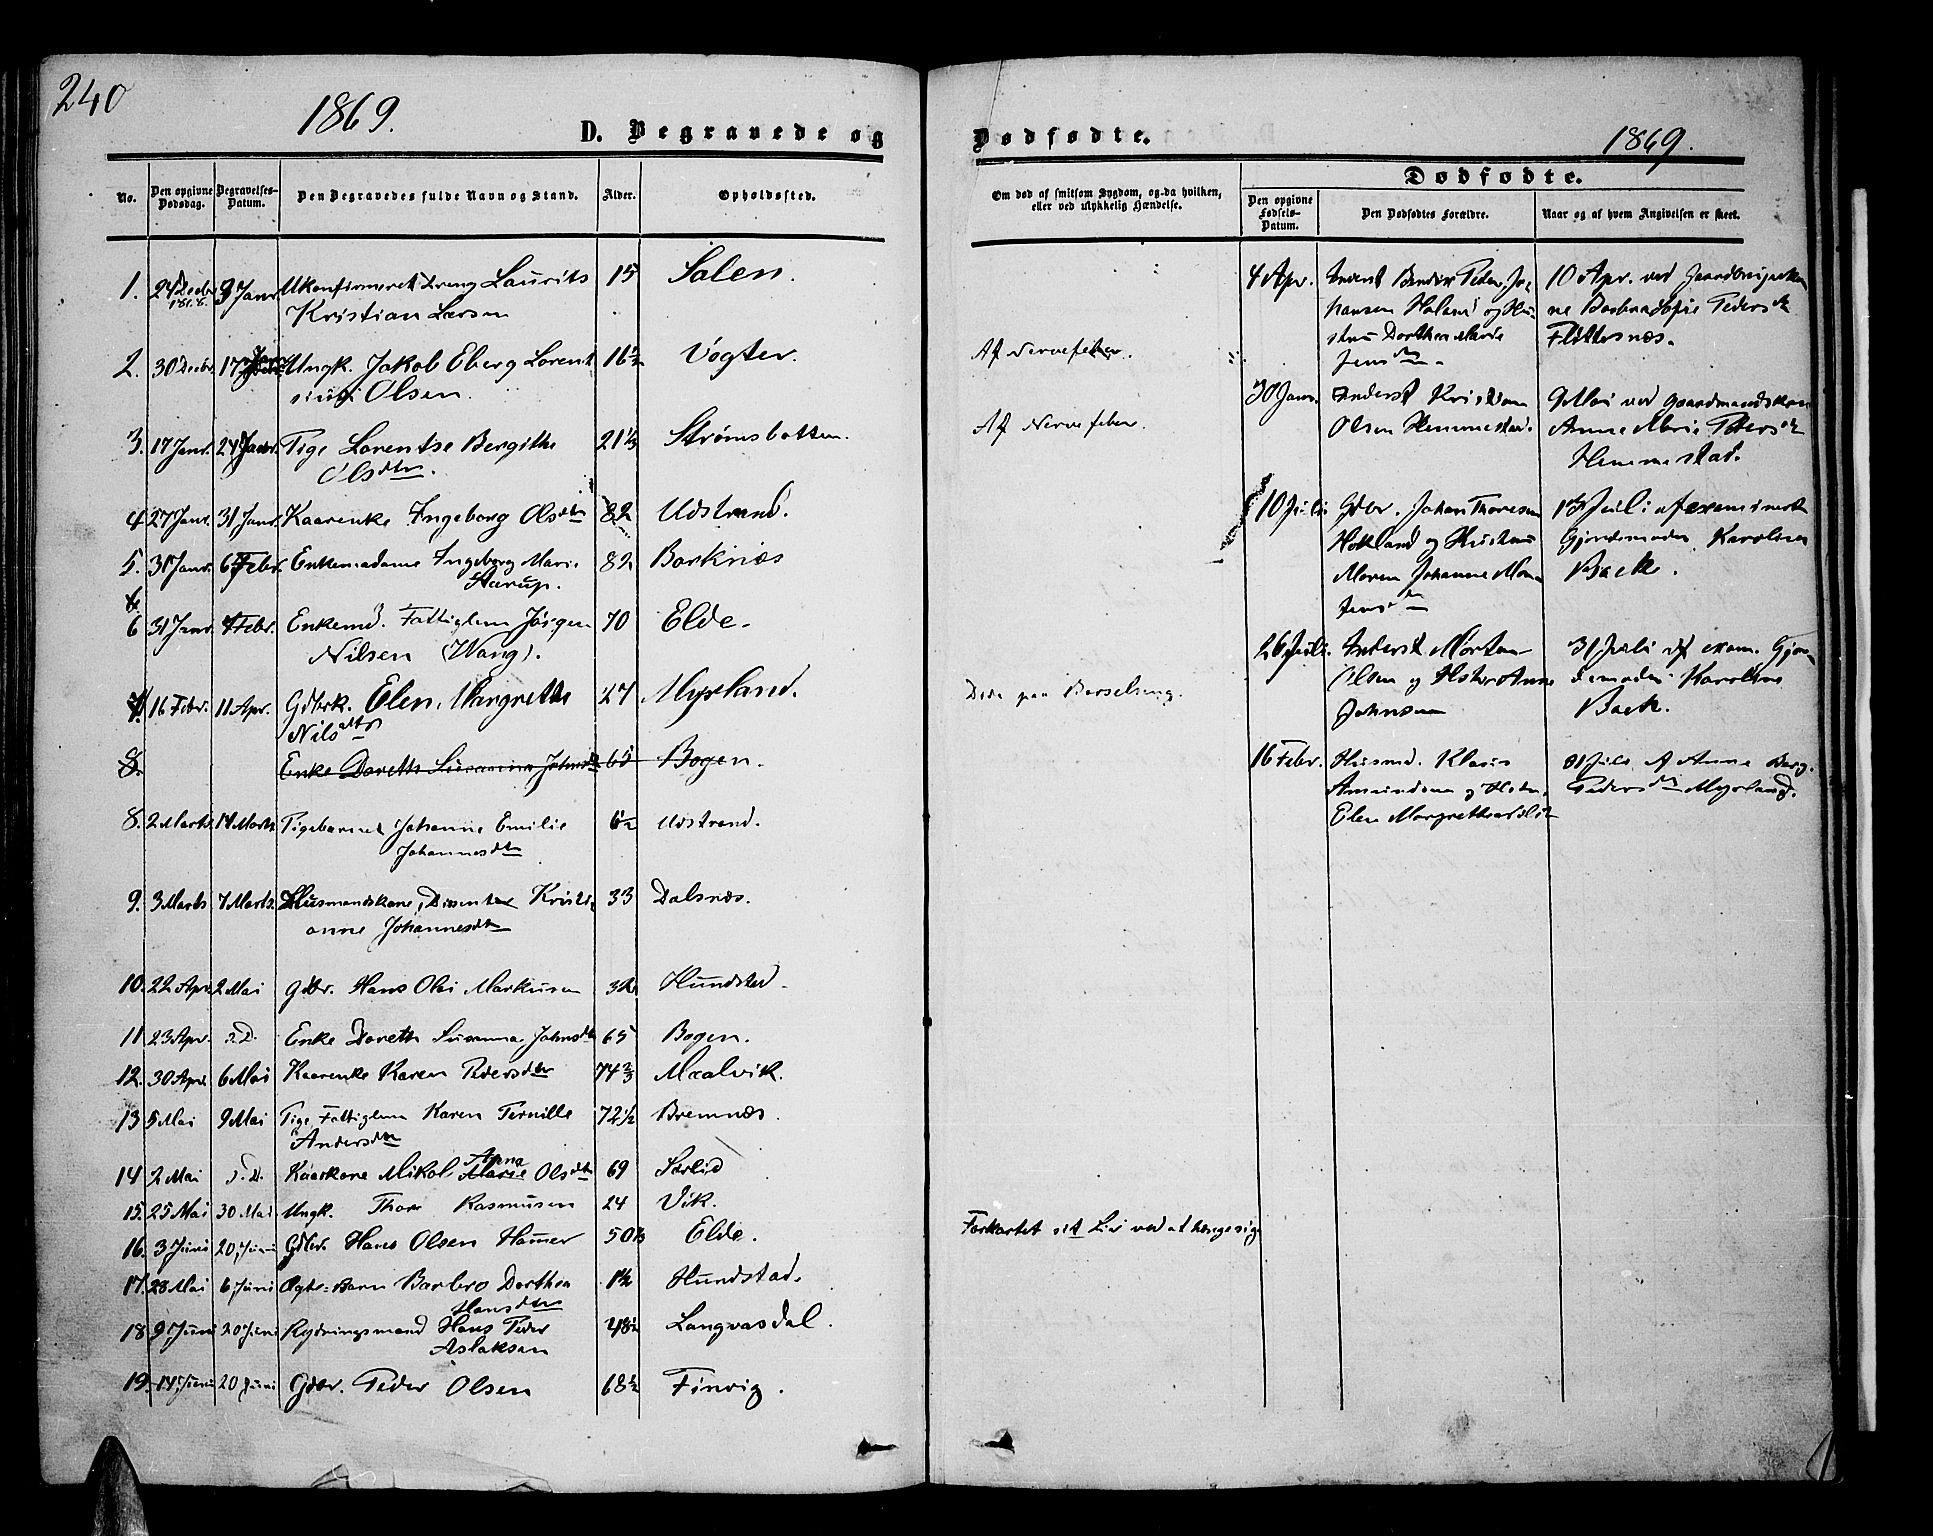 240
1869.
D. Begravede og
Dødfødte.
1869.
No.
Den opgivne Dødsdag.
Begravelses-Datum.
Den Begravedes fulde Navn og Stand.
Alder.
Opholdssted.
Om død af smitsom Sygdom, og da hvilken,
eller ved ulykkelig Hændelse.
Dødfødte.
Den opgivne Fødsels-Datum.
Den Dødfødtes Forældre.
Naar og af hvem Angivelsen er skeet.
1. 24 Decbr 1868. 3 Janr. Ukonfirmeret Dreng Laurits 15 Salen.
Kristian Larsen
2. 30 Decbr. 17 Janr Ungk. Jakob Eberg Lorent 16½ Vogter. Af Nervefeber.
sius Olsen.
3. 17 Janr. 24 Janr. Pige Lorentse Bergithe 21⅓ Strømsbotten. Af Nervefeber.
Olsdtr.
4 27 Janr. 31 Janr. Kaarenke Ingeborg Olsdtr 82 Udstrand.
5. 31 Janr. 6 Febr. Enkemadame Ingeborg Marie 82 Borknæs
Aarup.
6 31 Janr. 7 Febr. Enkemd. Fattiglem Jørgen 70 Elde.
Nilsen (Wang).
7. 16 Febr. 11 Apr. Gdbrk. Elen Margrethe 27 Myrland. Døde paa Barselseng.
Nilsdtr
8. Enke Doreth Susanna Johnsdtr 65 Bogen.
8. 2 Marts 14 Marts Pigebarnet Johanne Emilie 6½ Udstrand.
Johannesdtr
9. 3 Marts 7 Marts. Husmandskone, Dissenter Kristi- 33 Dalsnæs.
anne Johannesdtr
10. 22 Apr. 2 Mai Gdbr. Hans Olai Markusen 32 Hundstad.
11. 23 Apr. s.D. Enke Doreth Susanna Johnsdtr 65 Bogen.
12. 30 Apr. 6 Mai Kaarenke Karen Pedersdtr 74⅔ Maalvik.
13 5 Mai 9 Mai Pige, Fattiglem Karen Pernille 72½ Bremnæs.
Andersdtr
14 2 Mai s.D. Kaarkone Mikol Marie Anna Olsdtr 69 Sørlid
15. 25 Mai 30 Mai Ungk. Thore Rasmusen 24 Vik.
16. 3 Juni 20 Juni Gdbr. Hans Olsen Hamer 50⅓ Elde. Forkortet sit Liv ved at hænge sig
17. 28 Mai 6 Juni Ogte-Barn Barbro Dorthea 1½ Hundstad.
Hansdtr
18 9 Juni 20 Juni Rydningsmand Hans Peder 48½ Langvasdal.
Aslaksen
19. 14 Juni 20 Juni Gdbr. Peder Olsen 68½ Finvig.
4 Apr. Inderst Bendix Peder Jo- 10 Apr. ved
hansen Holand og Hu-
stru Dorthea Marie Flottesnæs.
Jensdtr.
30 Janr. Inderst Kristian 9 Mai ved Gaardmandskone
Olsen Hemmestad. Anne Marie Pedersdtr
Hemmestad.
10 Juli Gdbr. Johan Thoresen 13 Juli af examineret
Hokland og Hustru Gjordemoder Karoline
Maren Johanne Back.
Jensdtr
26 Juli. Inderst Morten 31 Juli af exam. Gjor-
Olsen og Hstr Anne demoder Karoline
Johnsen Back.
16 Febr. Husmd. Klaus 31 Juli Af Anne Berg.
Amundsen og Hstr. Pedersdtr Myrland.
Elen Margrethe Nilsdtr